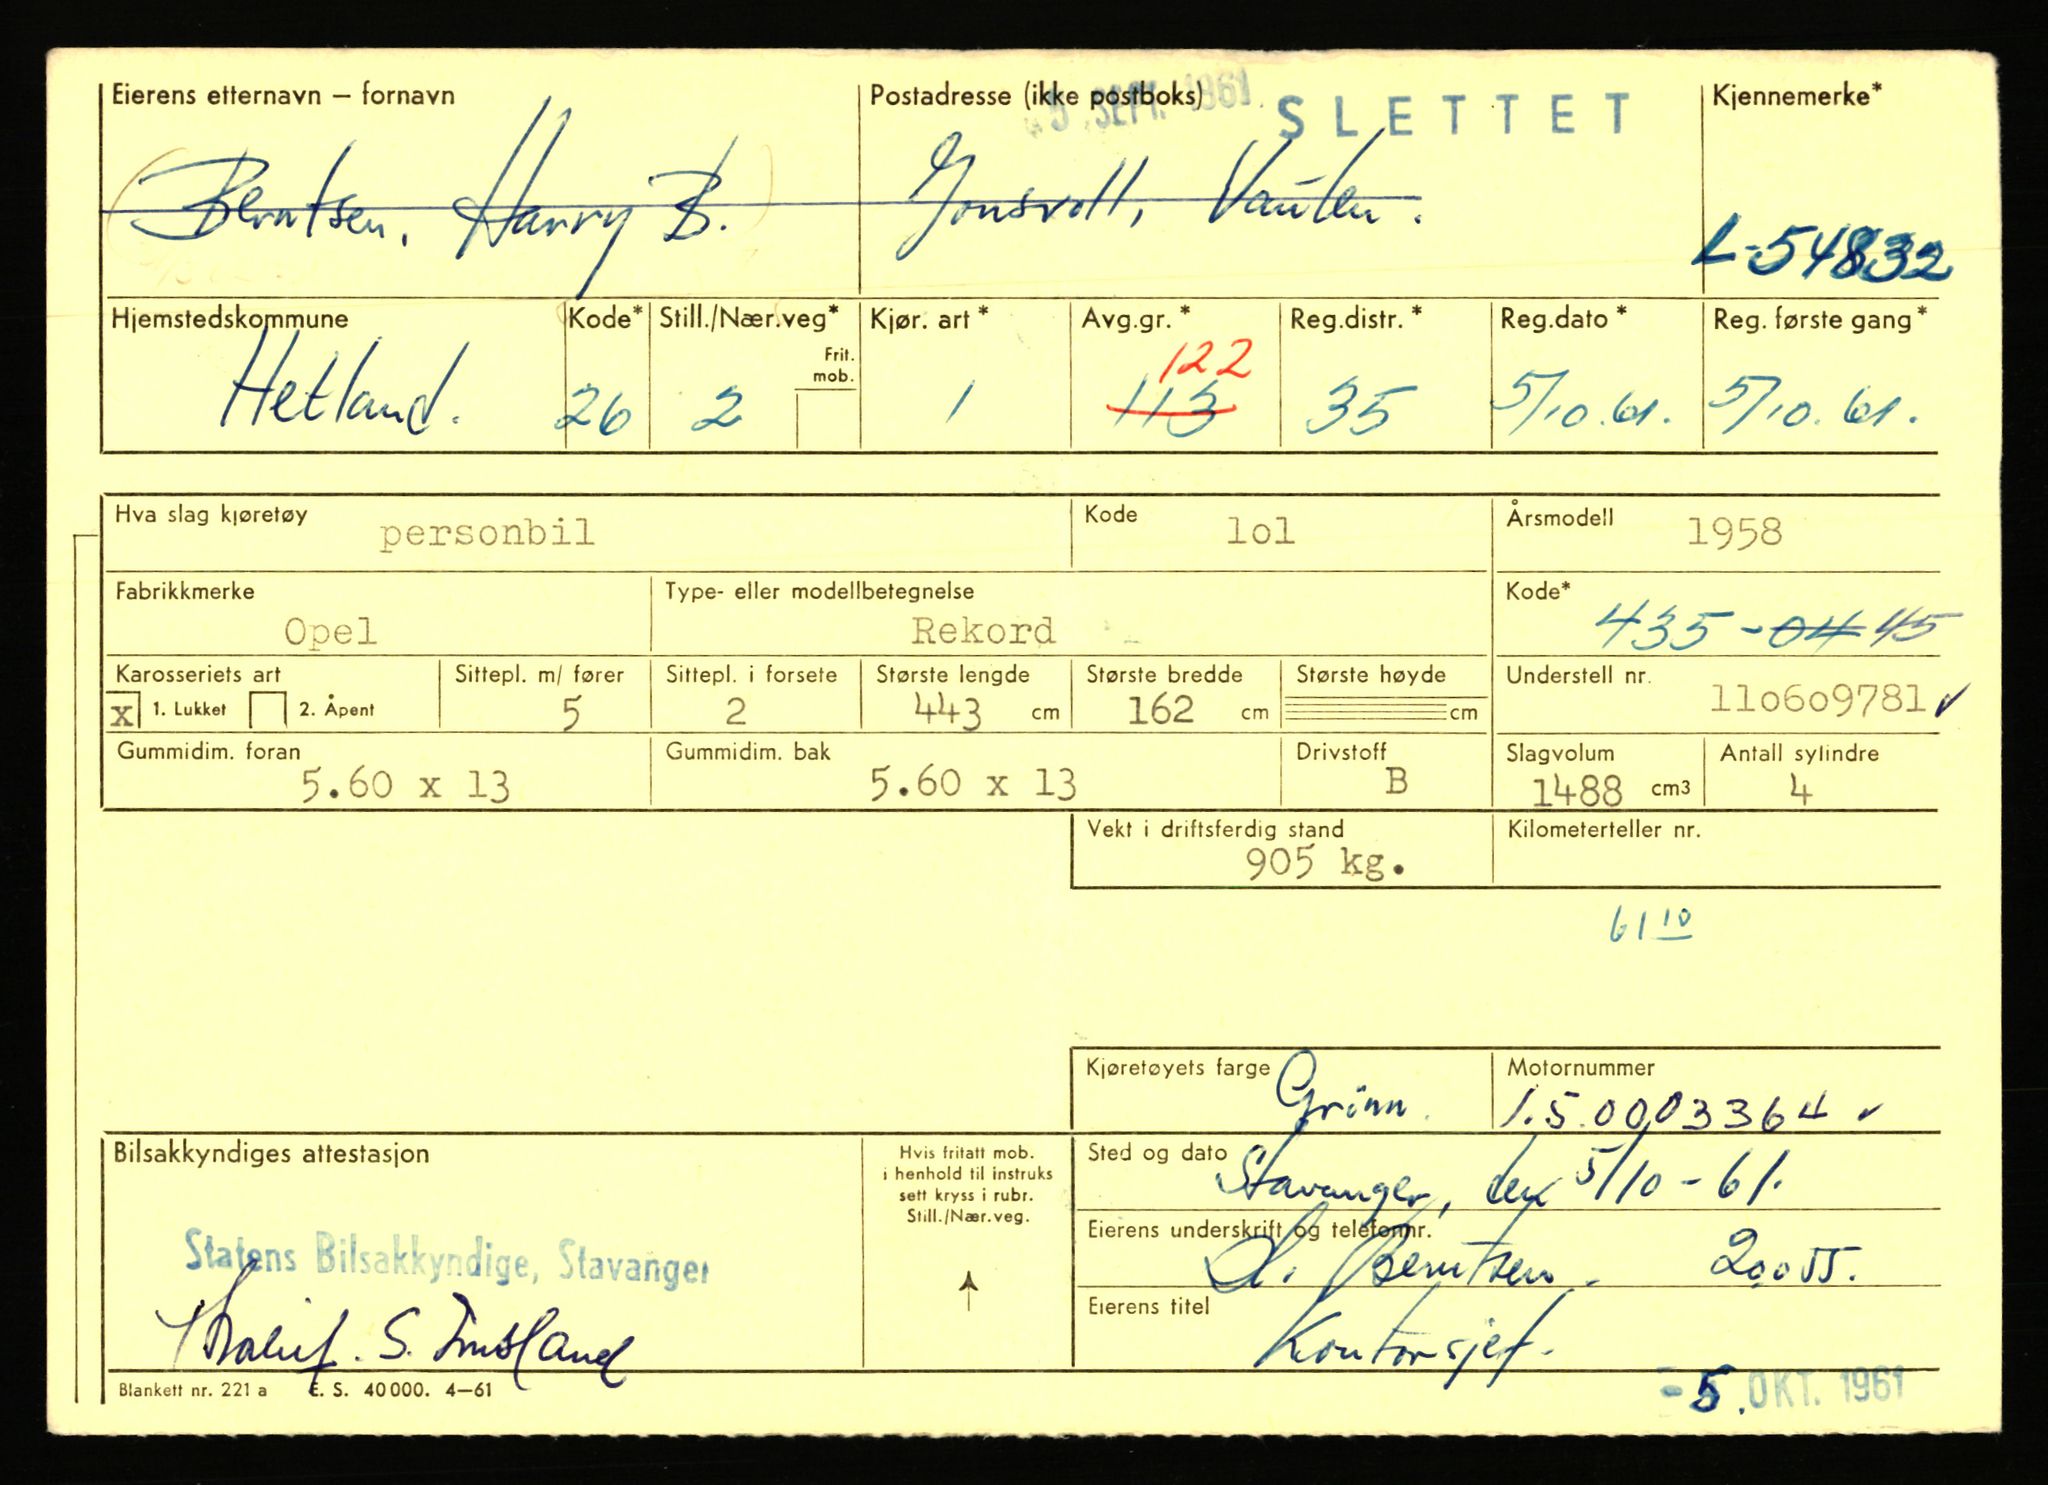 Eierens etternavn – fornavn Postadresse (ikke postboks) SEPT. 1961 SLETTET Kjennemerke*
(Berntsen, Harry B.) Jonsvoll, Vaulen. L-54832
Hjemstedskommune Kode* Still./Nær.veg* Kjør. art* Avg.gr.* Reg.distr.* Reg.dato* Reg. første gang*
Frit. mob.
122
Hetland. 26 2 1 113 35 5/10.61. 5/10.61.
Hva slag kjøretøy personbil Kode lol Årsmodell 1958
Fabrikkmerke Type- eller modellbetegnelse Kode*
Opel Rekord 435 -04 45
Karosseriets art Sittepl. m/ fører Sittepl. i forsete Største lengde Største bredde Største høyde Understell nr.
x 1. Lukket 2. Åpent 5 2 443 cm 162 cm cm 11o6o9781
Gummidim. foran Gummidim. bak Drivstoff Slagvolum Antall sylindre
5.60 x 13 5.60 x 13 B 1488 cm3 4
Vekt i driftsferdig stand Kilometerteller nr.
905 kg.
61 10
Kjøretøyets farge Motornummer
Grönn. 1.5.0003364
Bilsakkyndiges attestasjon
Hvis fritatt mob.
i henhold til instruks
sett kryss i rubr.
Still./Nær.veg.
Sted og dato
Stavanger, den 5/10-61.
Statens Bilsakkyndige, Stavanger
Eierens underskrift og telefonnr.
Berntsen. 20055.
Eierens titel
Kontorsjef.
S. Imsland
Blankett nr. 221 a E. S. 40000. 4–61
-5. OKT. 1961